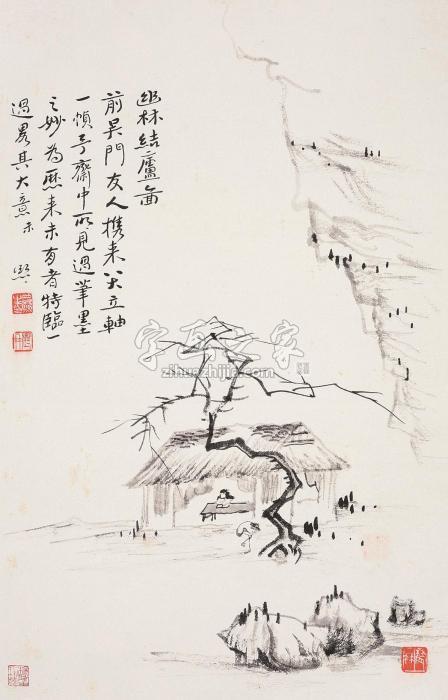 幽林結廬啚
前吴門友人携来八大立軸
一幀于齋中所見過筆墨
之妙為歷来未有者特臨一
過畧其大意
熙
字画之家
zihuazhijia.com